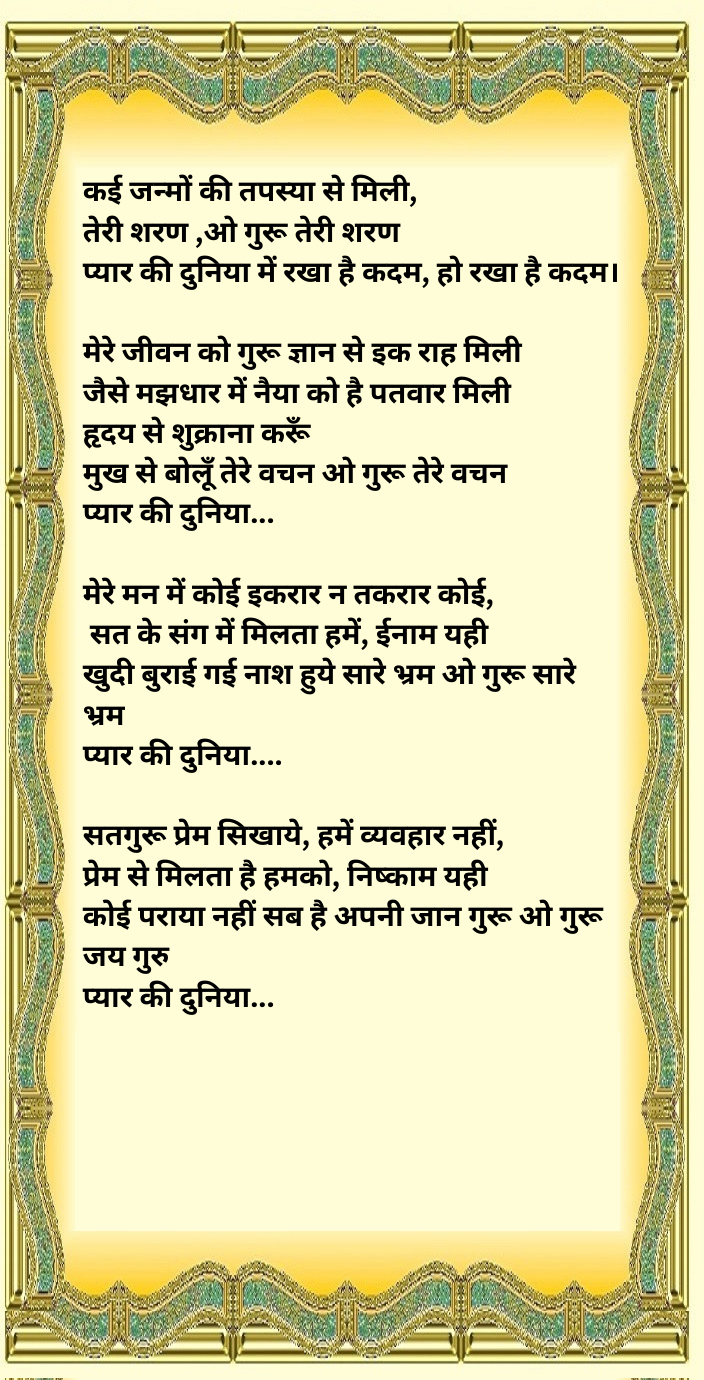 कई जन्मों की तपस्या से मिली,
तेरी शरण ,ओ गुरू तेरी शरण
प्यार की दुनिया में रखा है कदम, हो रखा है कदम।
मेरे जीवन को गुरू ज्ञान से इक राह मिली
जैसे मझधार में नैया को है पतवार मिली
हृदय से शुक्राना करूँ
मुख से बोलूँ तेरे वचन ओ गुरू तेरे वचन
प्यार की दुनिया...
मेरे मन में कोई इकरार न तकरार कोई,
सत के संग में मिलता हमें, ईनाम यही
खुदी बुराई गई नाश हुये सारे भ्रम ओ गुरू सारे
भ्रम
प्यार की दुनिया....
सतगुरू प्रेम सिखाये, हमें व्यवहार नहीं,
प्रेम से मिलता है हमको, निष्काम यही
कोई पराया नहीं सब है अपनी जान गुरू ओ गुरू
जय गुरु
प्यार की दुनिया...